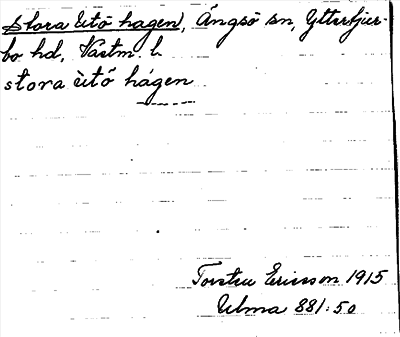 Stora Utö hagen, Ängsö sn, Yttertjur-
bo hd, Västm. l.
stora ùtö́ hágen
Torsten Ericsson 1915
Ulma 881:50